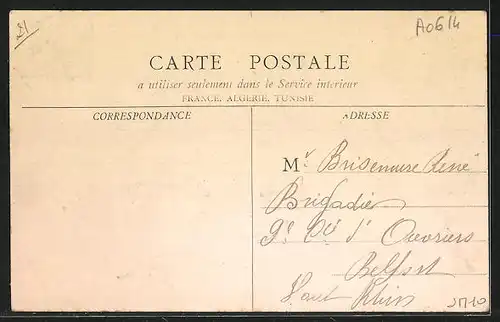 21
A0614
CARTE POSTALE
a utiliser seulement dans le Service interieur
FRANCE, ALGERIE, TUNISIE
CORRESPONDANCE
ADRESSE
Mr. René
Brigadier
d'Ouvriers
Belfort
Haut Rhin